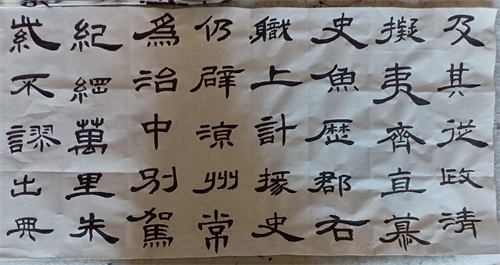 及其從政清
擬夷齊直慕
史魚歷郡右
職上計掾史
仍辟涼州常
爲治中別駕
紀綱萬里朱
紫不謬出典